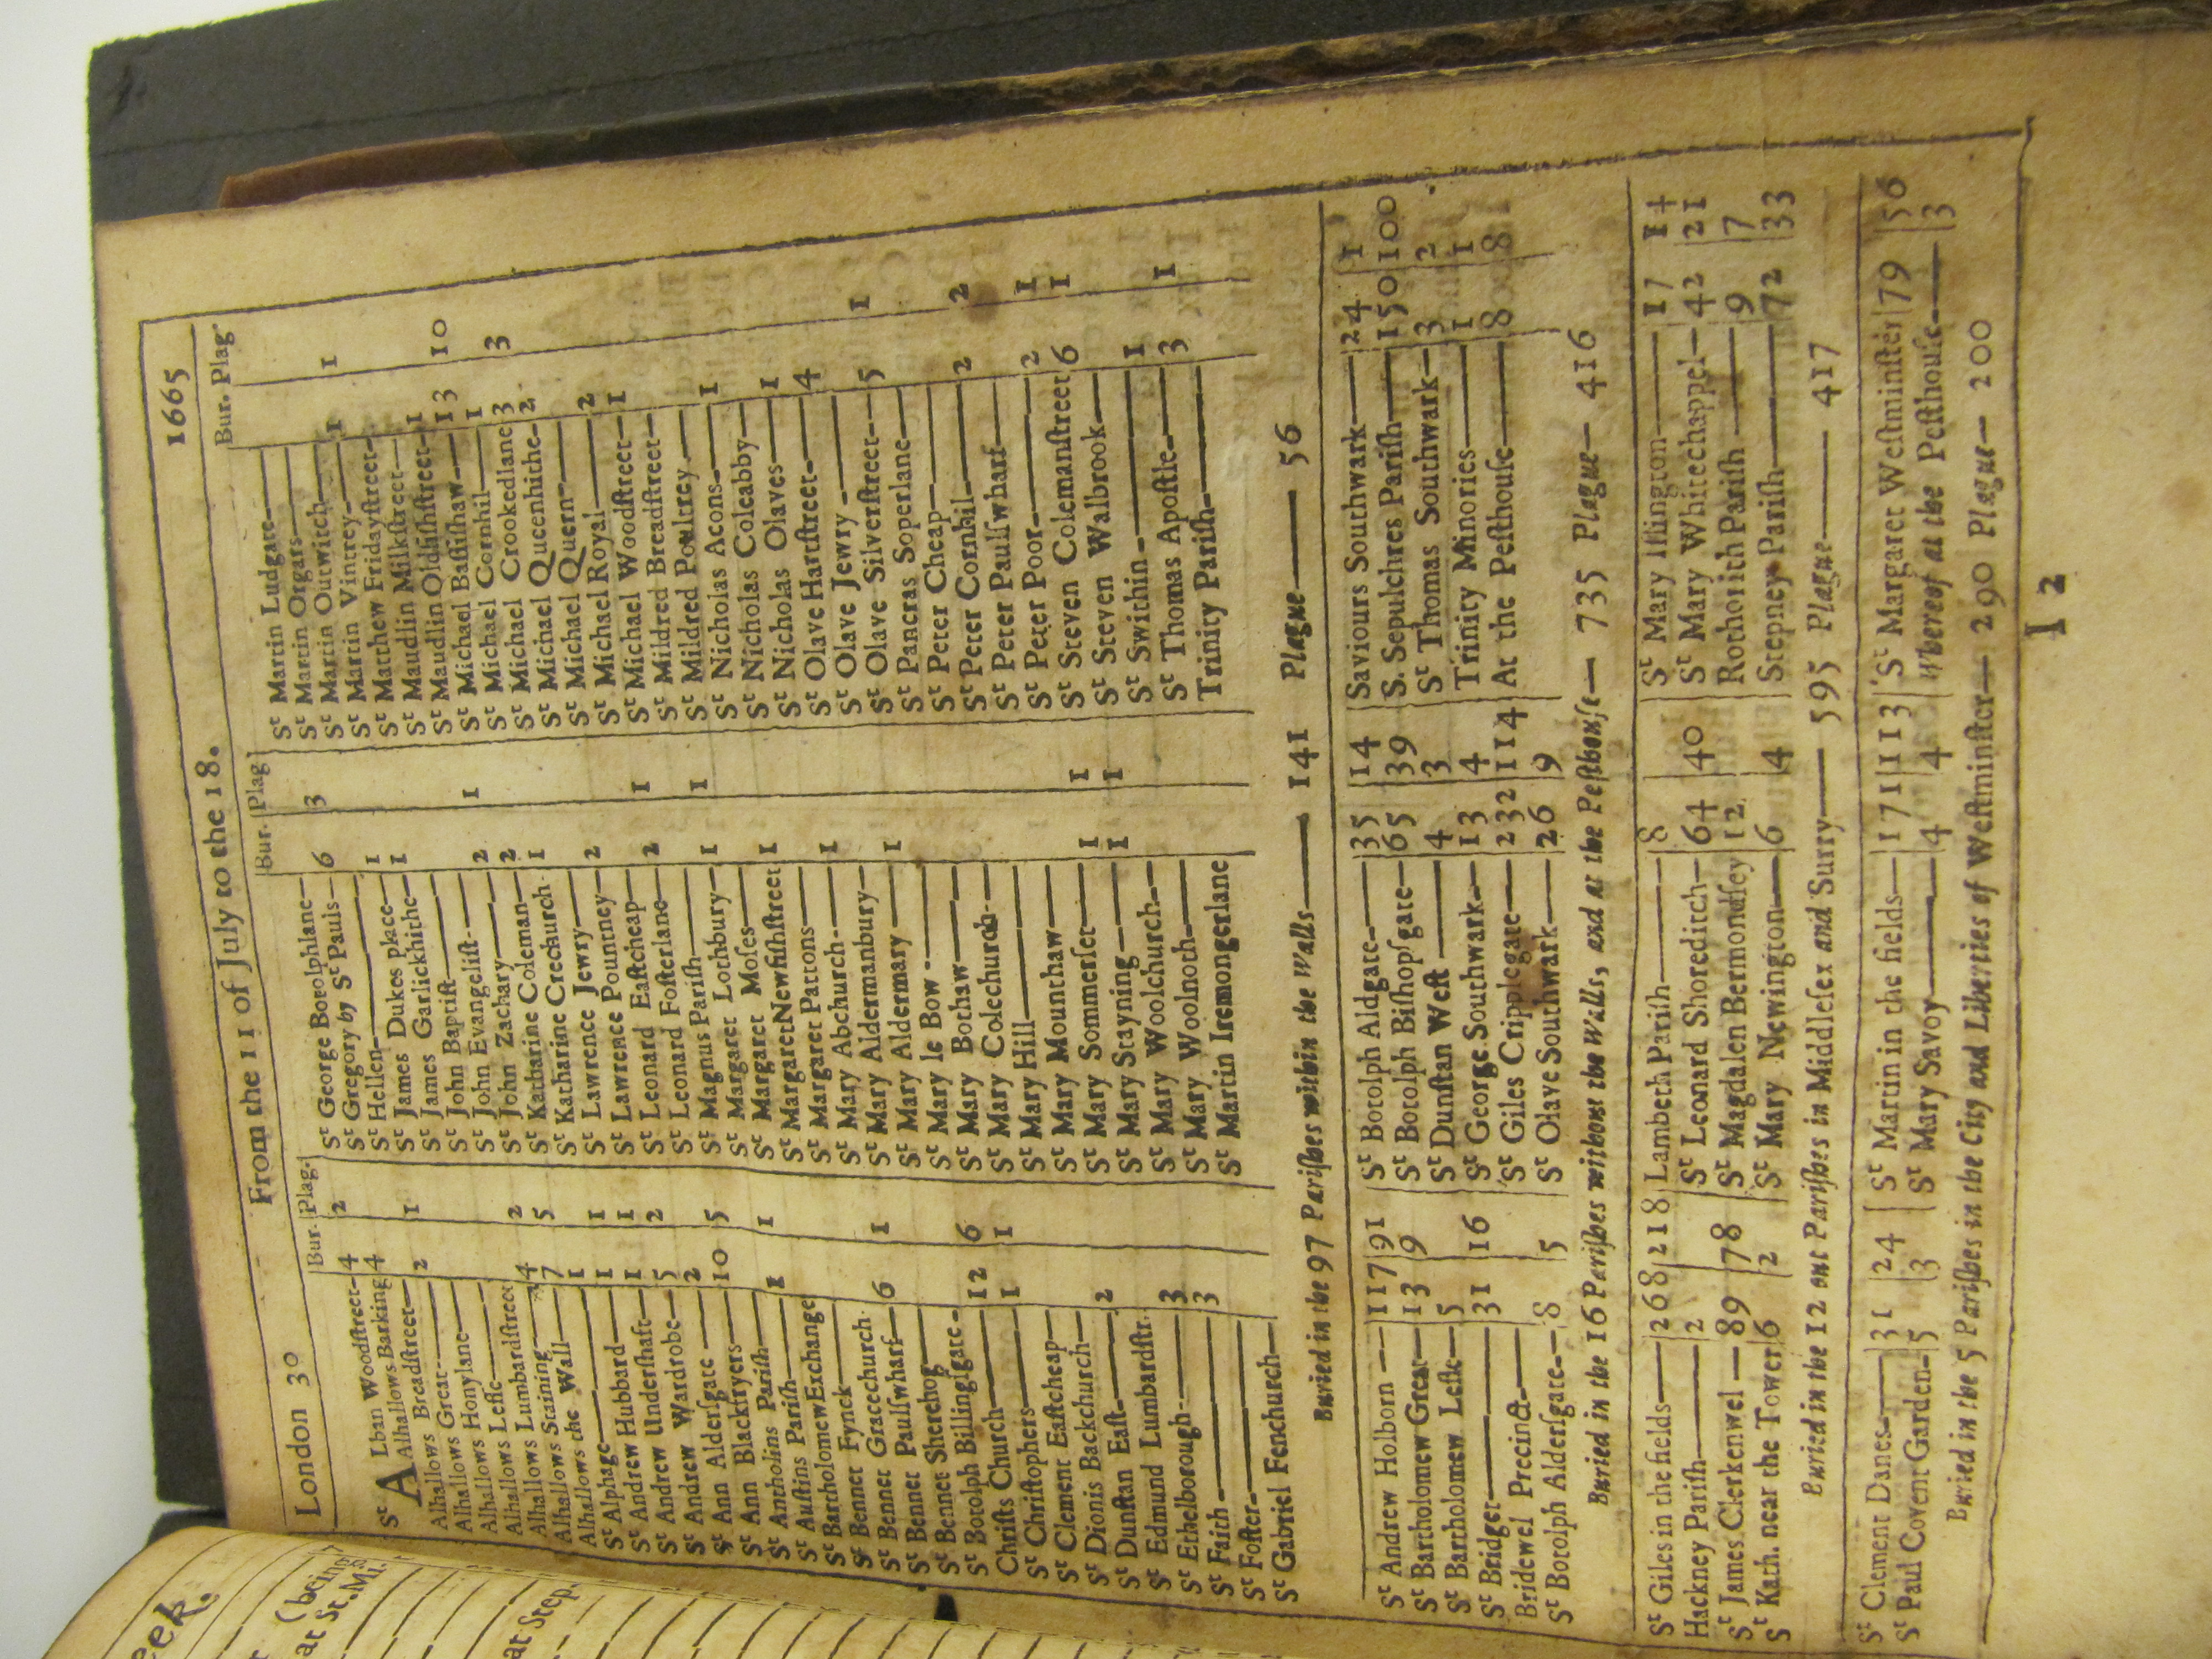 London 30 From the 11 of July to the 18. 1665
Bur. Plag. Bur. Plag Bur. Plag
St ALban Woodſtreet- 4 2
Alhallows Barking 4
Alhallows Breadſtreet—
Alhallows Great— 2 1
Alhallows Honylane—
Alhallows Leſſe—
Alhallows Lumbardſtreet
Alhallows Staining— 4 2
Alhallows the Wall— 7 5
St Alphage— 1
St Andrew Hubbard— 1 1
St Andrew Underſhaft- 1 1
St Andrew Wardrobe— 5 2
St Ann Alderſgate— 2
St Ann Blackfryers— 10 5
St Antholins Pariſh—
St Auſtins Pariſh— 1 1
St BartholomewExchange
St Bennet Fynck—
St Bennet Gracechurch-
St Bennet Paulſwharf— 6 1
St Bennet Sherehog—
St Botolph Billingſgate-
Chriſts Church— 12 6
St Chriſtophers— 1 1
St Clement Eaſtcheap—
St Dionis Backchurch—
St Dunſtan Eaſt— 2
St Edmund Lumbardſtr.
St Ethelborough— 3
St Faith— 3
St Foſter—
St Gabriel Fenchurch—
St George Botolphlane—
St Gregory by St Pauls- 6 3
St Hellen—
St James Dukes place— 1
St James Garlickhithe— 1
St John Baptiſt—
St John Evangeliſt—
St John Zachary— 2 1
St Katharine Coleman— 2
St Katharine Crechurch- 1
St Lawrence Jewry—
St Lawrence Pountney— 2
St Leonard Eaſtcheap—
St Leonard Foſterlane— 2 1
St Magnus Pariſh—
St Margaret Lothbury— 1 1
St Margaret Moſes—
St MargaretNewfiſhſtreet 1
St Margaret Pattons—
St Mary Abchurch— 1
St Mary Aldermanbury—
St Mary Aldermary— 1
St Mary le Bow—
St Mary Bothaw—
St Mary Colechurch—
St Mary Hill—
St Mary Mounthaw—
St Mary Sommerſet— 1 1
St Mary Stayning— 1 1
St Mary Woolchurch—
St Mary Woolnoth—
St Martin Iremongerlane
St Martin Ludgate—
St Martin Orgars—
St Martin Outwitch—
St Martin Vintrey— 1 1
St Matthew Fridayſtreet-
St Maudlin Milkſtreet—
St Maudlin Oldfiſhſtreet- 1
St Michael Baſſiſhaw— 13 10
St Michael Cornhil— 1
St Michael Crookedlane 3 3
St Michael Queenhithe- 2
St Michael Quern—
St Michael Royal— 2
St Michael Woodſtreet— 1
St Mildred Breadſtreet—
St Mildred Poultrey—
St Nicholas Acons— 1
St Nicholas Coleabby—
St Nicholas Olaves— 1
St Olave Hartſtreet— 4
St Olave Jewry—
St Olave Silverſtreet— 5 1
St Pancras Soperlane—
St Peter Cheap—
St Peter Cornhil— 2 2
St Peter Paulſwharf—
St Peter Poor— 2 1
St Steven Colemanſtreet 6 1
St Steven Walbrook—
St Swithin— 1
St Thomas Apoſtle— 3 1
Trinity Pariſh—
Buried in the 97 Pariſhes within the Walls— 141 Plague— 56
St Andrew Holborn— 117 91
St Bartholomew Great— 13 9
St Bartholomew Leſſe— 5
St Bridget— 31 16
Bridewel Precinct—
St Botolph Alderſgate— 8 5
St Botolph Aldgate— 35 14
St Botolph Biſhopſgate— 65 39
St Dunſtan Weſt— 4 3
St George Southwark— 13 4
St Giles Cripplegate— 232 114
St Olave Southwark— 26 9
Saviours Southwark— 24 1
S. Sepulchres Pariſh— 150 100
St Thomas Southwark— 3 2
Trinity Minories— 1 1
At the Peſthouſe— 8 8
Buried in the 16 Pariſhes without the Walls, and at the Peſthouſe— 735 Plague— 416
St Giles in the fields— 268 218
Hackney Pariſh— 2
St James Clerkenwel— 89 78
St Kath. near the Tower 6 2
Lambeth Pariſh— 8
St Leonard Shoreditch— 64 40
St Magdalen Bermondſey 12
St Mary Newington— 6 4
St Mary Iſlington— 17 14
St Mary Whitechappel- 42 21
Rothorith Pariſh— 9 7
Stepney Pariſh— 72 33
Buried in the 12 out Pariſhes in Middleſex and Surry— 595 Plague— 417
St Clement Danes— 31 24
St Paul Covent Garden- 5 3
St Martin in the fields— 171 113
St Mary Savoy— 4 4
St Margaret Weſtminſter 79 56
Whereof at the Peſthouſe— 3
Buried in the 5 Pariſhes in the City and Liberties of Weſtminſter— 290 Plague— 200
I 2
eek.
(being
at St.Mi-
at Step-